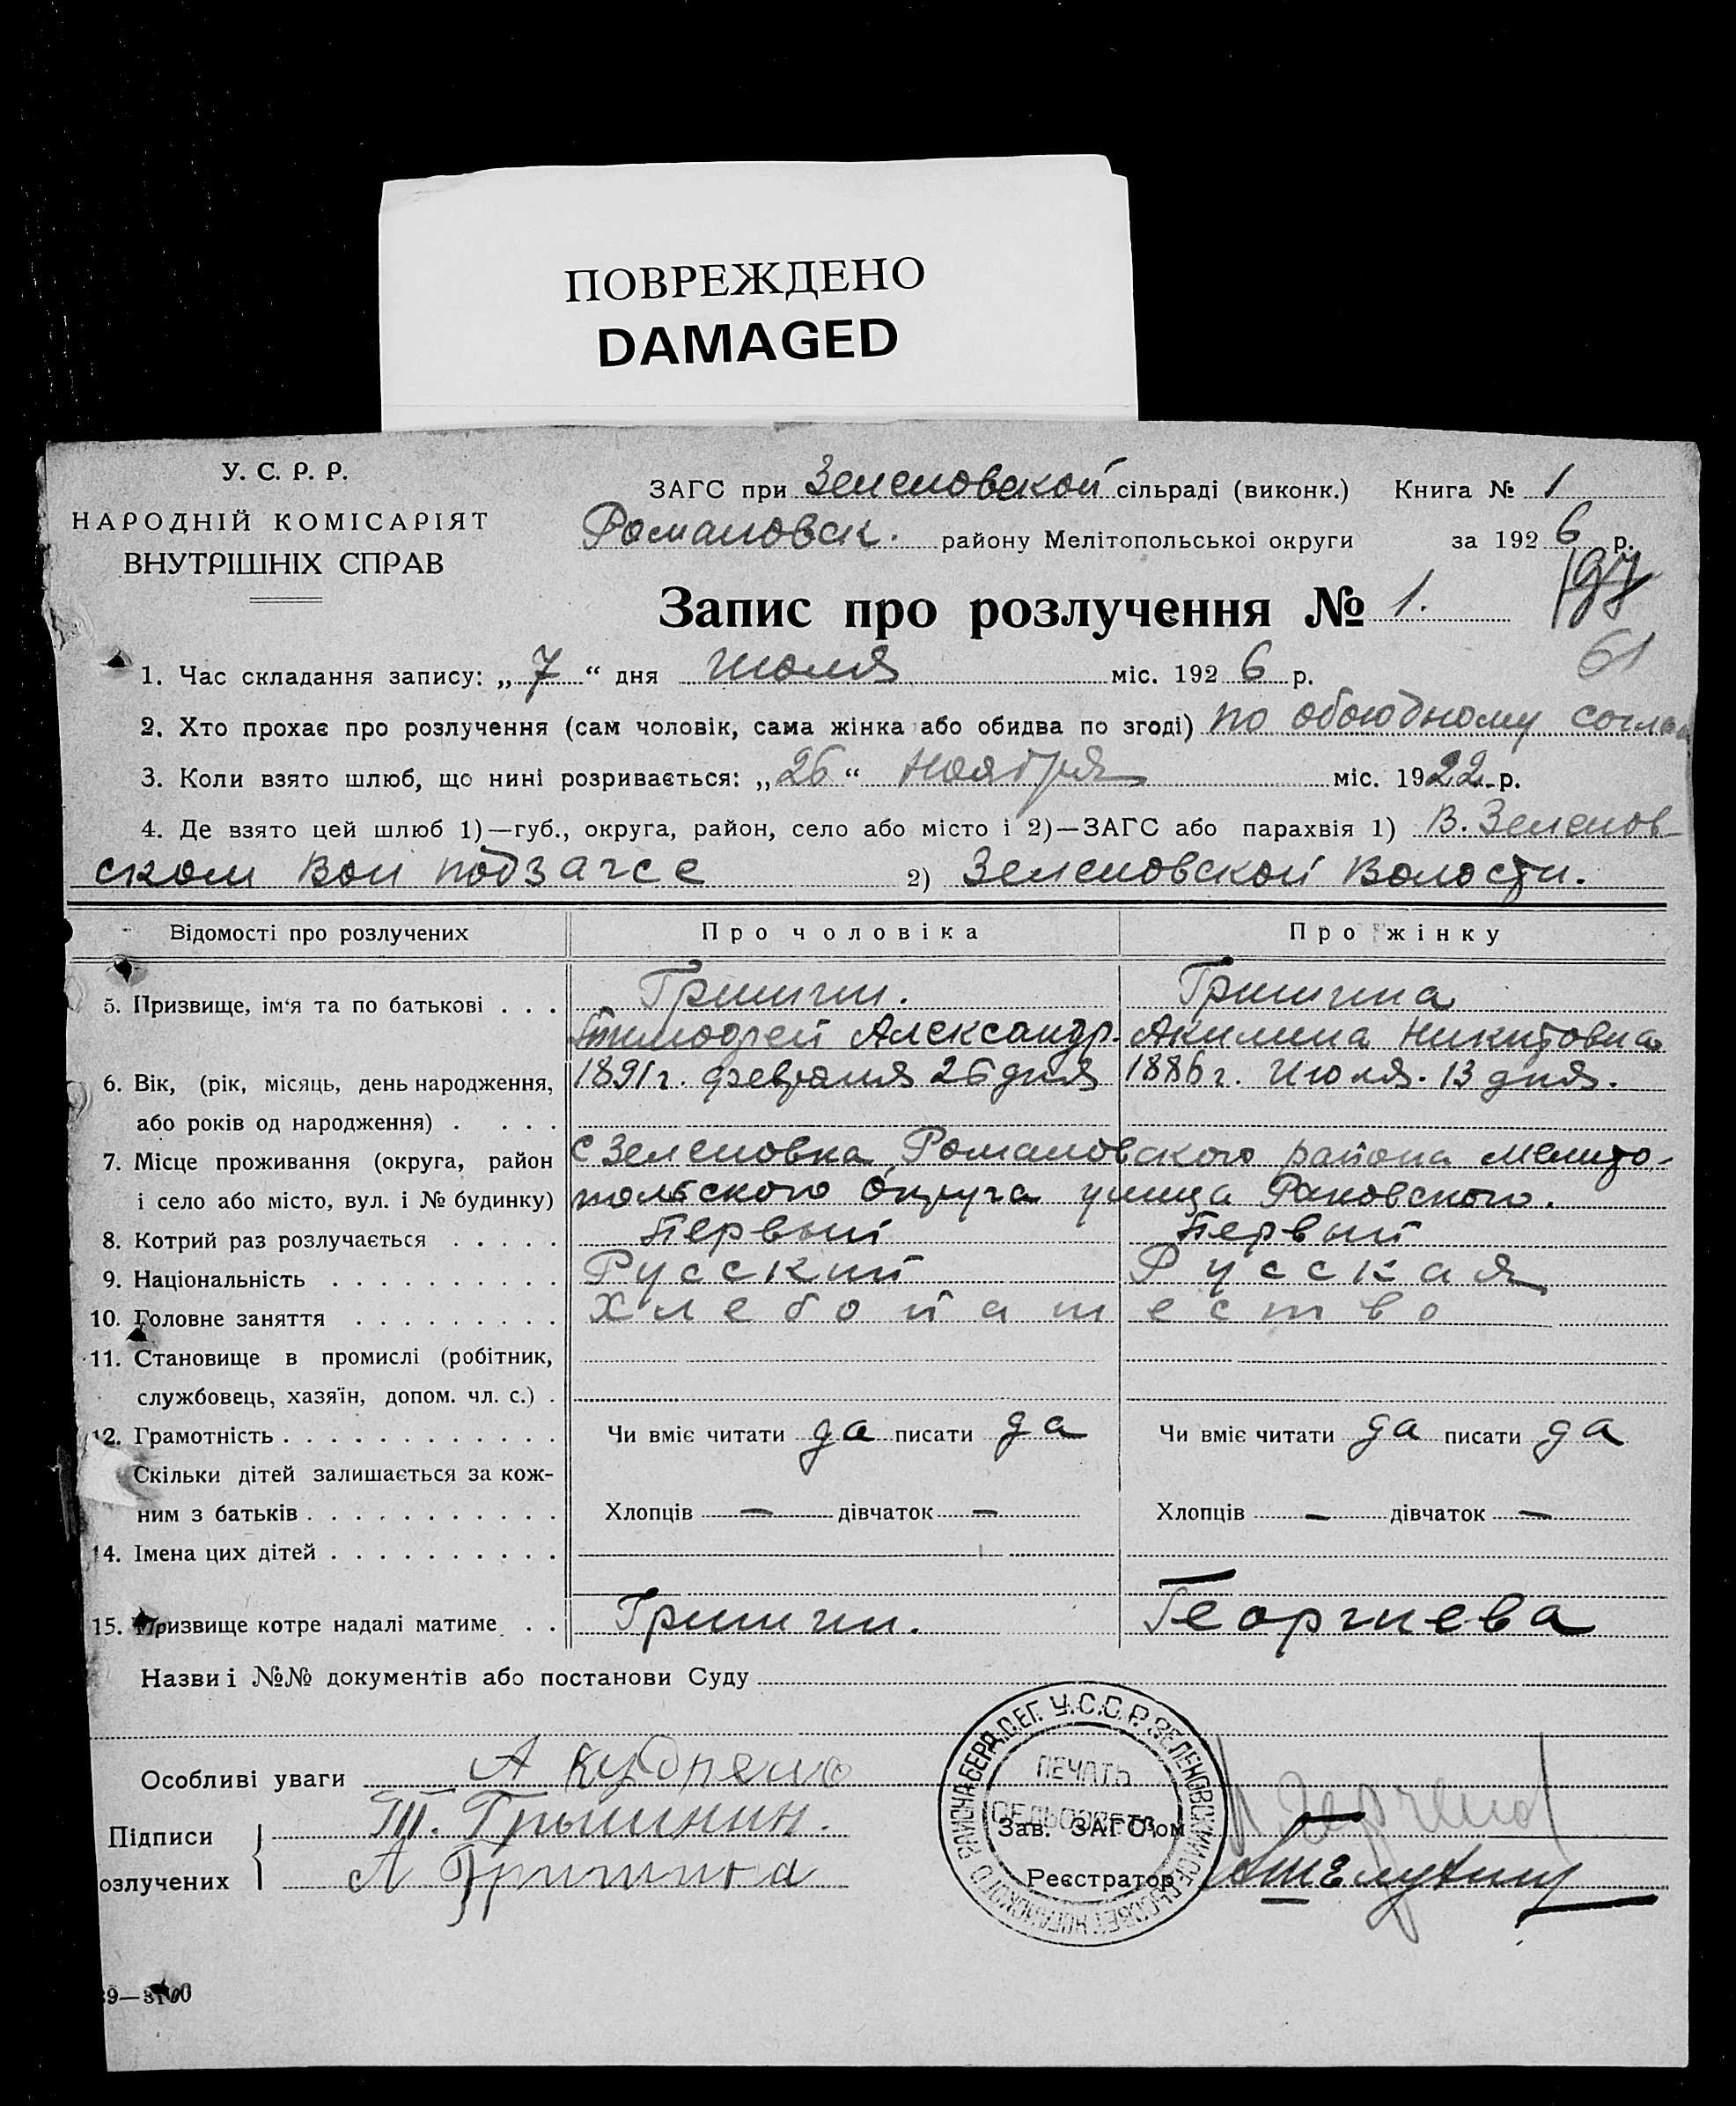 ПОВРЕЖДЕНО
DAMAGED
У. С. Р. Р.
НАРОДНІЙ КОМІСАРІЯТ
ВНУТРІШНІХ СПРАВ
ЗАГС при Зеленовской сільраді (виконк.) Книга № 1
Романовск. району Мелітопольської округи за 1926 р.
197
Запис про розлучення № 1.
61
1. Час складання запису: „7“ дня Июля міс. 1926 р.
2. Хто прохає про розлучення (сам чоловік, сама жінка або обидва по згоді) по обоюдному соглас
3. Коли взято шлюб, що нині розривається: „26“ Ноября міс. 1922 р.
4. Де взято цей шлюб 1)—губ., округа, район, село або місто і 2)—ЗАГС або парахвія 1) В. Зеленов
ском Вол подзагсе 2) Зеленовской Волости.
Відомості про розлучених Про чоловіка Про жінку
5. Призвище, ім‘я та по батькові . . . Гришин. Гришина
Тимофей Александр. Акилина Никитовна
6. Вік, (рік, місяць, день народження, 1891 г. февраля 26 дня 1886 г. Июля. 13 дня.
або років од народження) . . . .
7. Місце проживання (округа, район с Зеленовка, Романовского района Мелито-
і село або місто, вул. і № будинку) польского Округа улица Раковского.
8. Котрий раз розлучається . . . . . Первый Первый
9. Національність . . . . . . . . . . Русский Русская
10. Головне заняття . . . . . . . . . Хлебопашество
11. Становище в промислі (робітник,
службовець, хазяїн, допом. чл. с.) .
12. Грамотність . . . . . . . . . . . . Чи вміє читати да писати да Чи вміє читати да писати да
Скільки дітей залишається за кож-
ним з батьків . . . . . . . . . . . Хлопців — дівчаток — Хлопців — дівчаток —
14. Імена цих дітей . . . . . . . . . .
15. Призвище котре надалі матиме . . Гришин. Георгиева
Назви і №№ документів або постанови Суду
Особливі уваги А
Підписи Т. Грышнин.
озлучених А Гришина
У.С.С.Р. ЗЕЛЕНОВСКИЙ СЕЛЬСОВЕТ НОГАЙСКОГО РАЙОНА БЕРД.
ПЕЧАТЬ
СЕЛЬСОВЕТА
Зав. ЗАГС‘ом
Реєстратор
39—3100